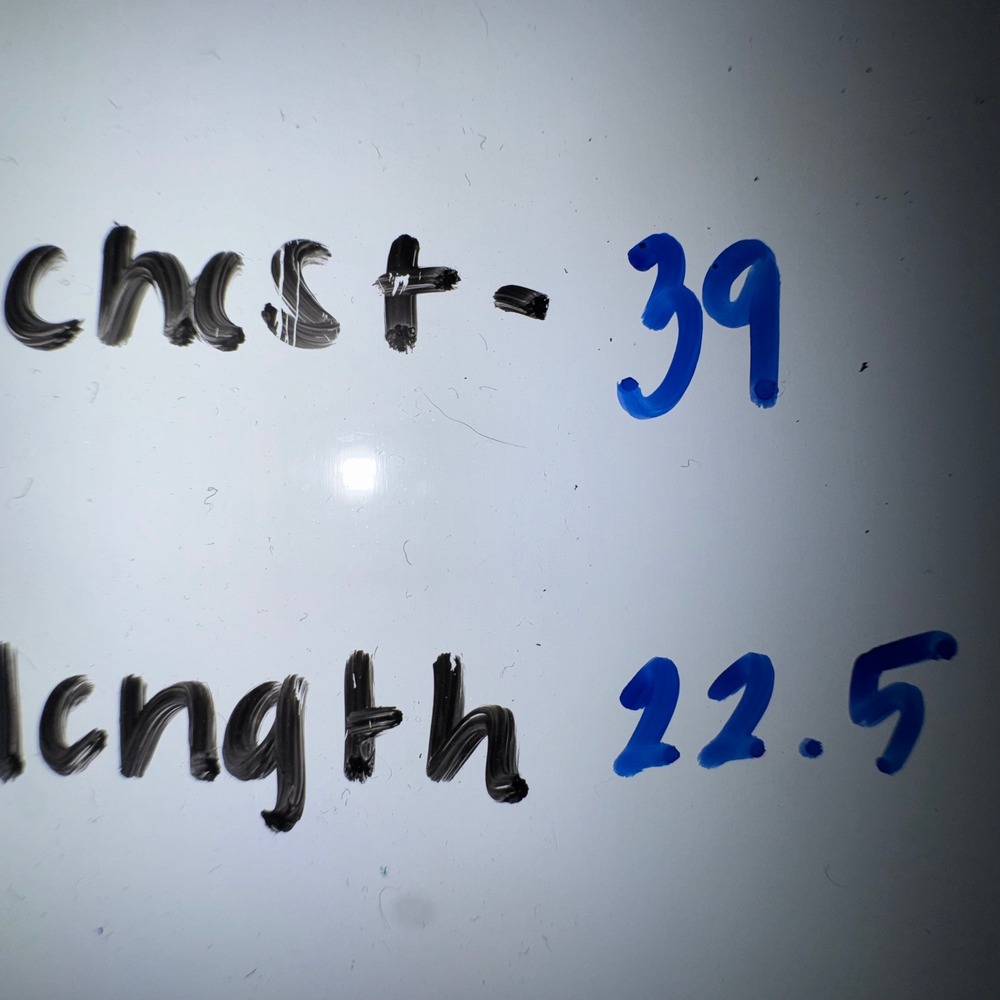 chest- 39
length 22.5